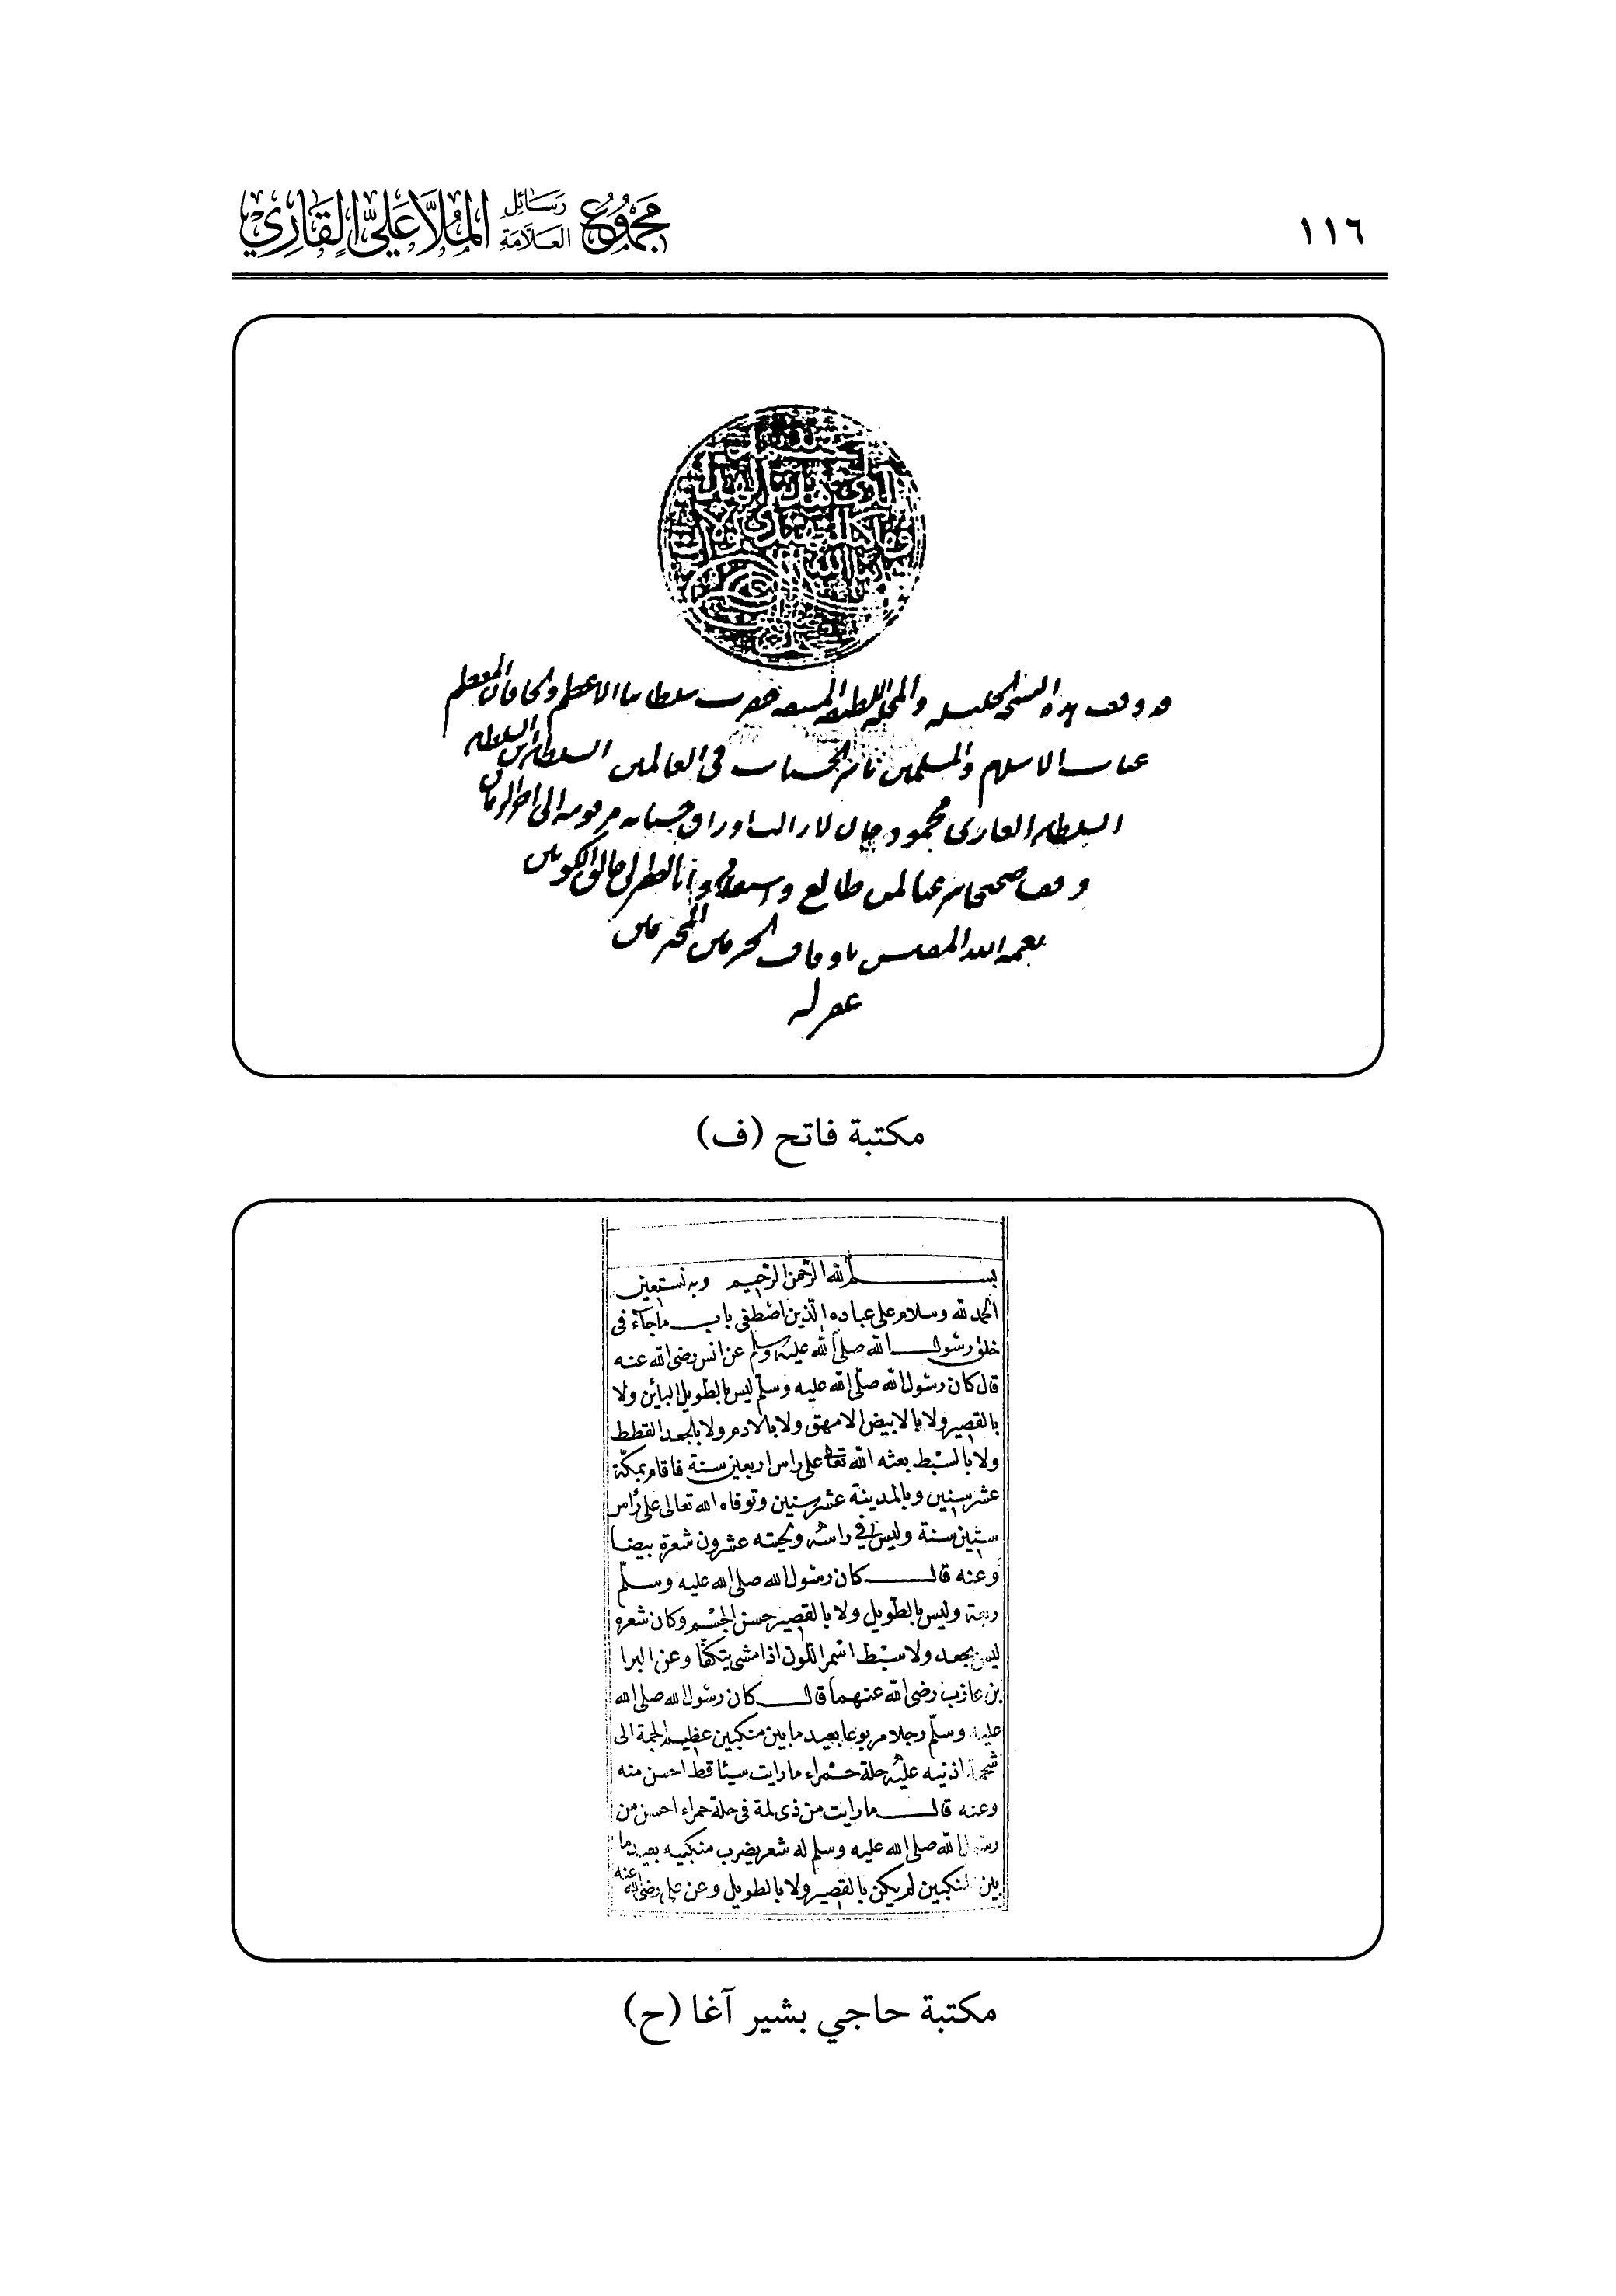 ١١٦
مجموع رسائل العلامة الملا علي القاري
الحمد لله الذي هدانا لهذا وما كنا لنهتدي لولا أن هدانا الله
قد وقف هذه النسخه الجليله والمجلة اللطيفه حضرت سلطاننا الاعظم والخاقان المعظم
غياث الاسلام والمسلمين ناشر الحسنات في العالمين السلطان ابن السلطان
السلطان الغازى محمود خان لازالت اوراق حسناته مرقومه الى اخر الزمان
وقفا صحيحا لمن طالع وانا الفقير الى خالق الكونين
نعمة الله المفتش باوقاف الحرمين المحترمين
غفر له
مكتبة فاتح (ف)
بسم الله الرحمن الرحيم وبه نستعين
الحمد لله وسلام على عباده الذين اصطفى باب ماجآء فى
خلق رسول الله صلى الله عليه وسلم عن انس رضى الله عنه
قال كان رسول الله صلى الله عليه وسلم ليس بالطويل البائن ولا
بالقصير ولا بالابيض الامهق ولا بالادم ولا بالجعد القطط
ولا بالسبط بعثه الله تعالى على راس اربعين سنة فاقام بمكة
عشر سنين وبالمدينة عشر سنين وتوفاه الله تعالى على رأس
ستين سنة وليس في راسه ولحيته عشرون شعرة بيضا
وعنه قال كان رسول الله صلى الله عليه وسلم
ربعة وليس بالطويل ولا بالقصير حسن الجسم وكان شعره
ليس بجعد ولا سبط اسمر اللون اذا مشى يتكفا وعن البرا
بن عازب رضى الله عنهما قال كان رسول الله صلى الله
عليه وسلم رجلا مربوعا بعيد ما بين منكبين عظيم الجمة الى
شحمة اذنيه عليه حلة حمراء ما رايت سيئا قط احسن منه
وعنه قال ما رايت من ذى لمة فى حلة حمراء احسن من
رسول الله صلى الله عليه وسلم له شعر يضرب منكبيه بعيد ما
بين المنكبين لم يكن بالقصير ولا بالطويل وعن على رضى الله عنه
مكتبة حاجي بشير آغا (ح)